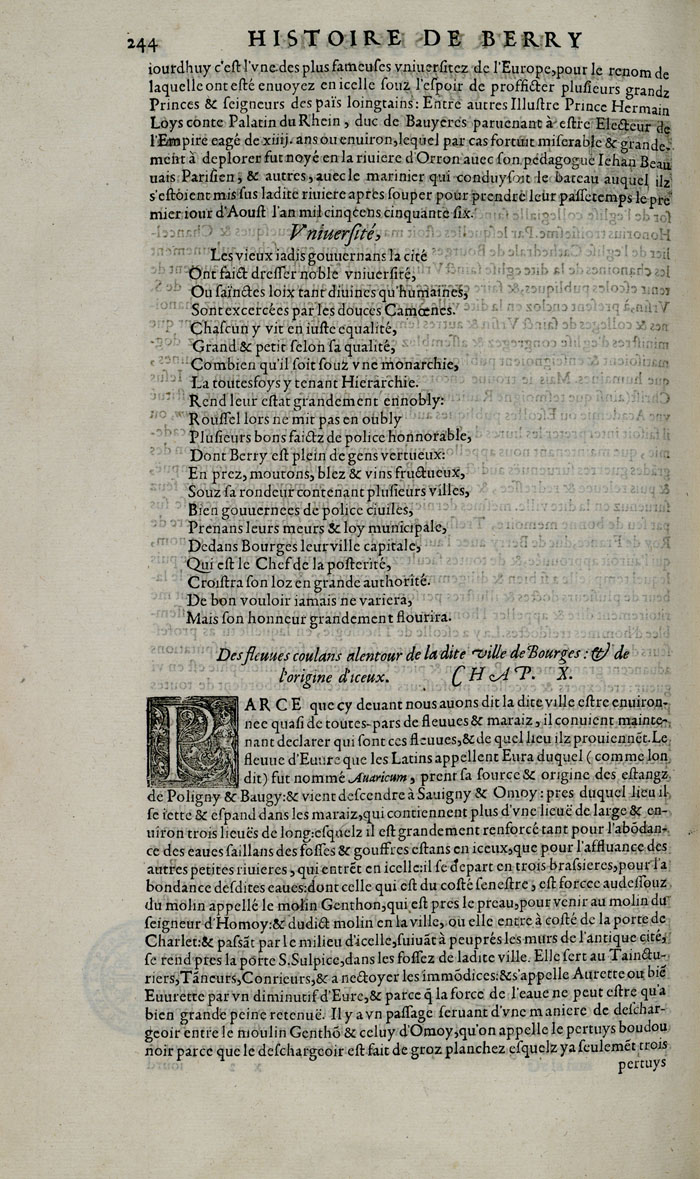 244 HISTOIRE DE BERRY
iourdhuy c'eſt l'vne des plus fameuſes vniuerſitez de l'Europe, pour le renom de
laquelle ont eſté enuoyez en icelle ſouz l'eſpoir de proffiter pluſieurs grandz
Princes & ſeigneurs des païs loingtains: Entre autres Illuſtre Prince Hermain
Loys conte Palatin du Rhein, duc de Bauyeres paruenant à eſtre Electeur de
l'Empire eagé de xiiij. ans ou enuiron, lequel par cas fortuit miſerable & grande-
ment à deplorer fut noyé en la riuiere d'Orron auec ſon pédagogue Iehan Beau
uais Pariſien, & autres, auec le marinier qui conduyſoit le bateau auquel ilz
s'eſtoient mis ſus ladite riuiere apres ſouper pour prendre leur paſſetemps le pre
mier iour d'Aouſt l'an mil cinq cens cinquante ſix.
Vniuerſité,
Les vieux iadis gouuernans la cité
Ont faict dreſſer noble vniuerſité,
Ou ſainctes loix tant diuines qu'humaines,
Sont excercées par les douces Camœnes.
Chaſcun y vit en iuſte equalité,
Grand & petit ſelon ſa qualité,
Combien qu'il ſoit ſouz vne monarchie,
La toutesfoys y tenant Hierarchie.
Rend leur eſtat grandement ennobly:
Rouſſel lors ne mit pas en oubly
Pluſieurs bons faictz de police honnorable,
Dont Berry eſt plein de gens vertueux:
En prez, moutons, blez & vins fructueux,
Souz ſa rondeur contenant pluſieurs villes,
Bien gouuernees de police ciuiles,
Prenans leurs meurs & loy municipale,
Dedans Bourges leur ville capitale,
Qui eſt le Chef de la poſterité,
Croiſtra ſon loz en grande authorité.
De bon vouloir iamais ne variera,
Mais ſon honneur grandement flourira.
Des fleuues coulans alentour de la dite ville de Bourges: & de
l'origine d'iceux. CHAP. X.
PARCE que cy deuant nous auions dit la dite ville eſtre enuiron-
nee quaſi de toutes-pars de fleuues & maraiz, il conuient mainte-
nant declarer qui ſont ces fleuues, & de quel lieu ilz prouiennēt. Le
fleuue d'Eeure que les Latins appellent Eura duquel (comme lon
dit) fut nommé Auaricum, prent ſa ſource & origine des eſtangz
de Poligny & Baugy: & vient deſcendre à Sauigny & Omoy: pres duquel lieu il
ſe iette & eſpand dans les maraiz, qui contiennent plus d'vne lieuë de large & en-
uiron trois lieuës de long: eſquelz il eſt grandement renforcé tant pour l'abōdan-
ce des eaues ſaillans des foſſes & gouffres eſtans en iceux, que pour l'affluance des
autres petites riuieres, qui entrēt en icelle: il ſe depart en trois braſſieres, pour l'a
bondance deſdites eaues: dont celle qui eſt du coſté ſeneſtre, eſt forcee audeſſouz
du molin appellé le molin Genthon, qui eſt pres le preau, pour venir au molin du
ſeigneur d'Homoy: & dudict molin en la ville, ou elle entre à coſté de la porte de
Charlet: & paſſāt par le milieu d'icelle, ſuiuāt à peuprés les murs de l'antique cité,
ſe rend pres la porte S. Sulpice, dans les foſſez de ladite ville. Elle ſert au Tainctu-
riers, Tāneurs, Conrieurs, & a nectoyer les immōdices: & s'appelle Aurette ou biē
Euurette par vn diminutif d'Eure, & parce q̄ la force de l'eaue ne peut eſtre qu'a
bien grande peine retenuë. Il y a vn paſſage ſeruant d'vne maniere de deſchar-
geoir entre le moulin Genthō & celuy d'Omoy, qu'on appelle le pertuys boudou
noir parce que le deſchargeoir eſt fait de groz planchez eſquelz ya ſeulemēt trois
pertuys